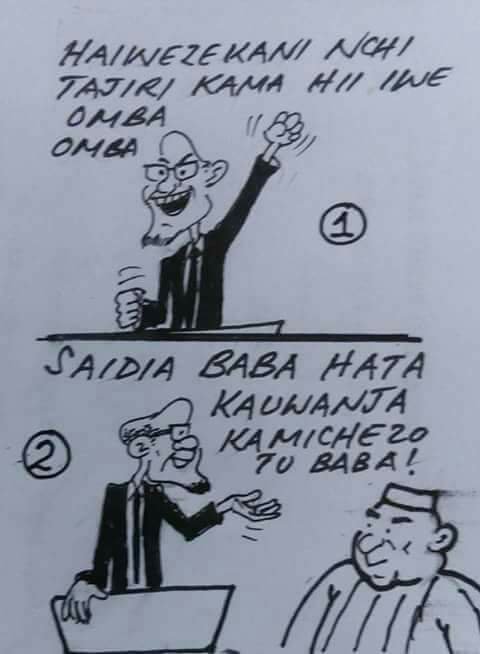 HAIWEZEKANI NCHI
TAJIRI KAMA HII IWE
OMBA
OMBA
1
SAIDIA BABA HATA
KAUWANJA
KAMICHEZO
TU BABA!
2